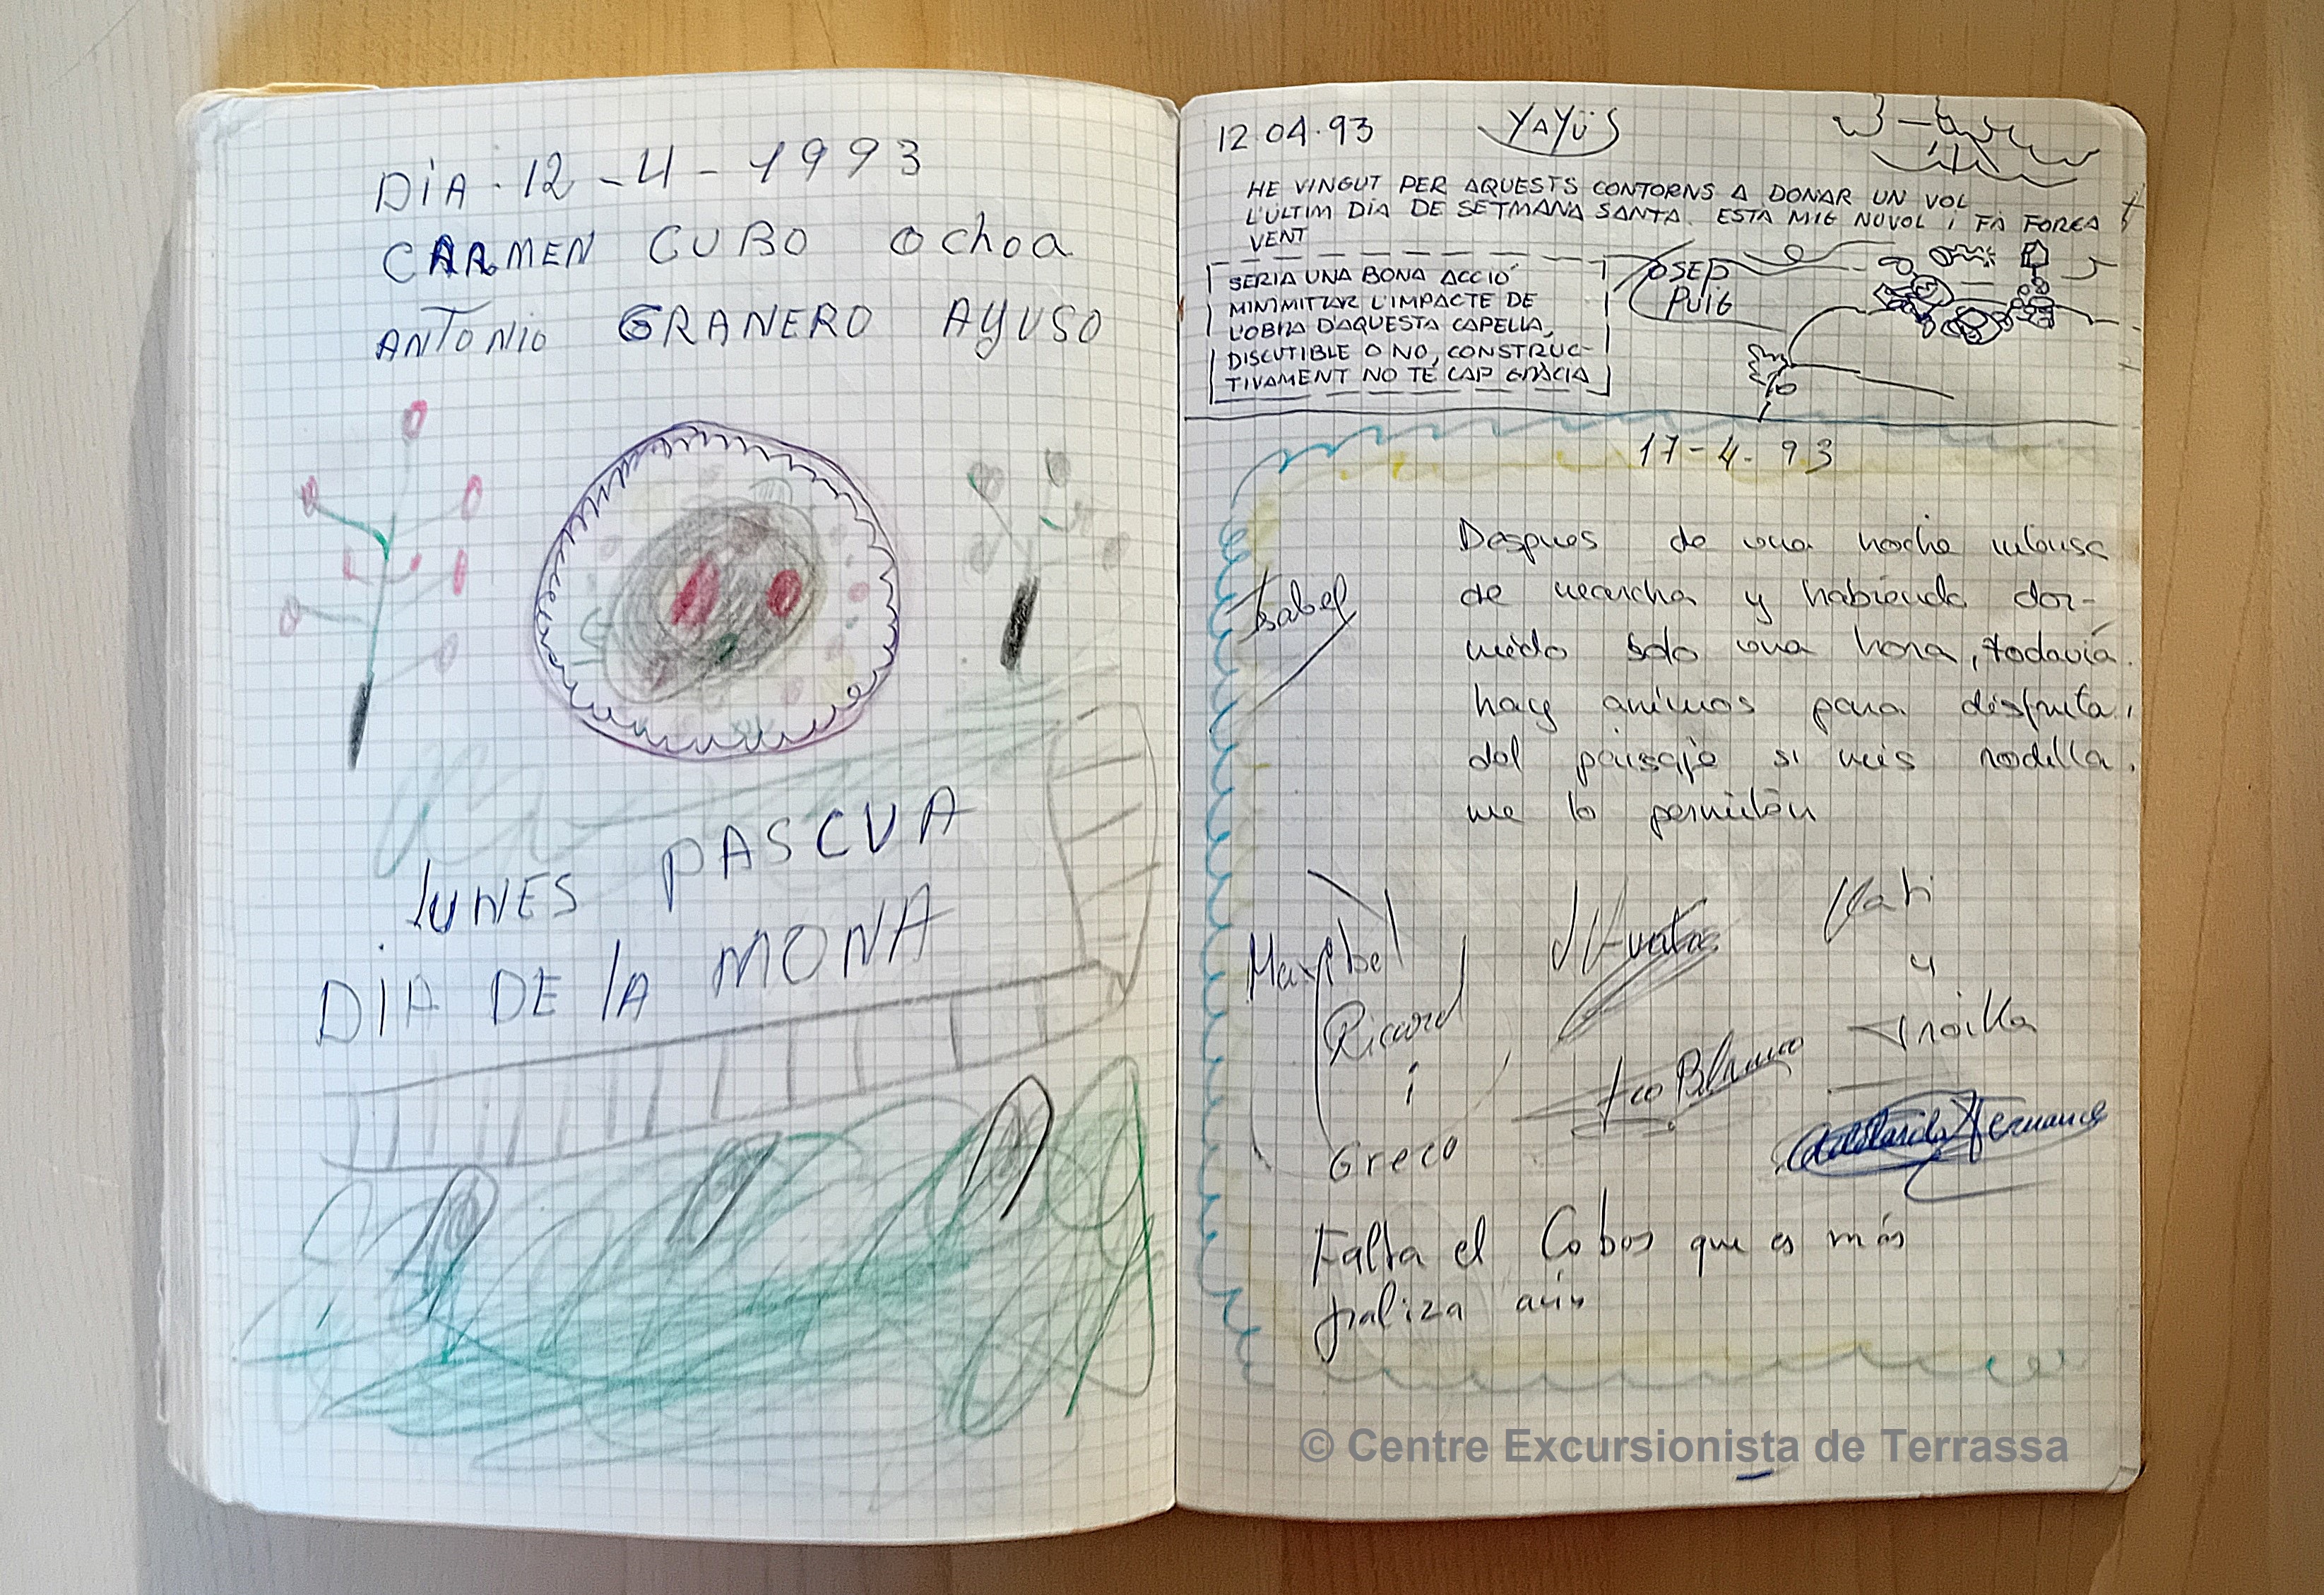 DiA. 12 - 4 - 1993
CARMEN CUBO Ochoa
ANTONIO GRANERO AYUSO
LUNES PASCUA
DIA DE LA MONA
12.04.93
YAYÜS
HE VINGUT PER AQUESTS CONTORNS A DONAR UN VOL
L'ULTIM DIA DE SETMANA SANTA. ESTA MIG NUVOL i FA FORÇA
VENT
SERIA UNA BONA ACCIÓ
MINIMITZAR L'IMPACTE DE
L'OBRA D'AQUESTA CAPELLA,
DISCUTIBLE O NO, CONSTRUC-
TIVAMENT NO TÉ CAP GRÀCIA
JOSEP
PUIG
17-4-93
Isabel
Despues de una noche intensa
de marcha y habiendo dor-
mido solo una hora, todavía
hay animos para disfruta
del paisaje si mis rodilla
me lo permiten
Maribel
Ricard
i
Greco
y
Troika
Fco Blanco
Falta el Cobos que es más
paliza aún
© Centre Excursionista de Terrassa